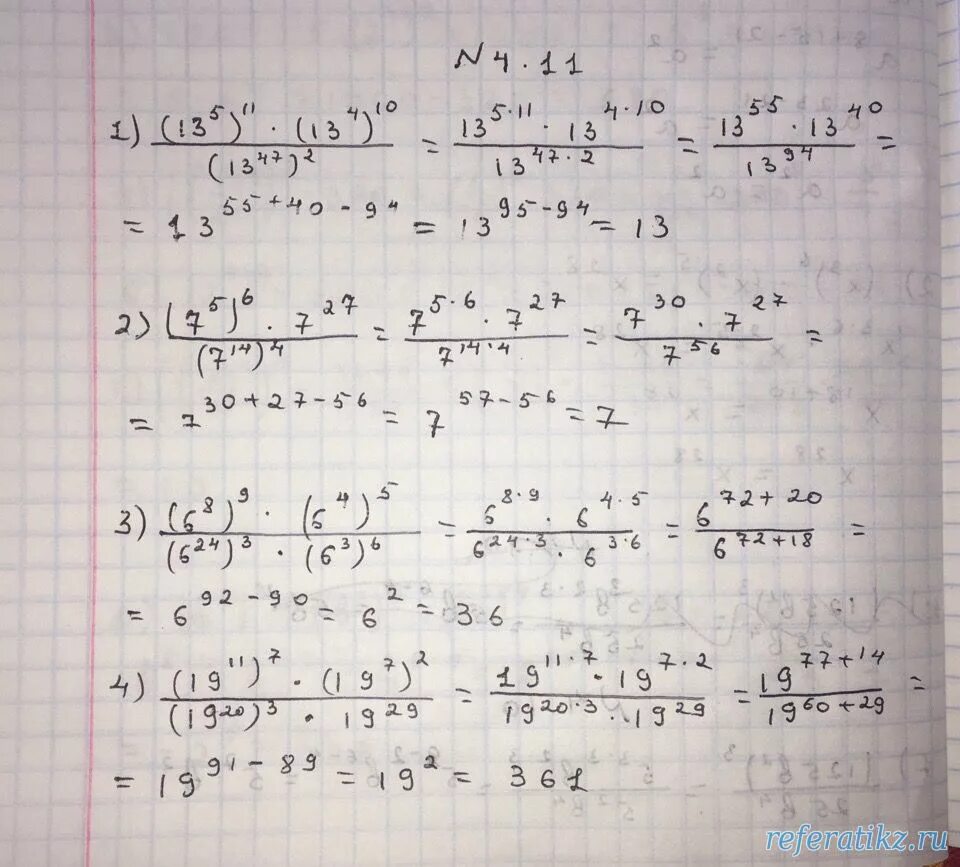 N 4.11
1) (13^5)^11 · (13^4)^10 / (13^47)^2 = 13^5·11 · 13^4·10 / 13^47·2 = 13^55 · 13^40 / 13^94 =
= 13^55+40-94 = 13^95-94 = 13
2) (7^5)^6 · 7^27 / (7^14)^4 = 7^5·6 · 7^27 / 7^14·4 = 7^30 · 7^27 / 7^56 =
= 7^30+27-56 = 7^57-56 = 7
3) (6^8)^9 · (6^4)^5 / (6^24)^3 · (6^3)^6 = 6^8·9 · 6^4·5 / 6^24·3 · 6^3·6 = 6^72+20 / 6^72+18 =
= 6^92-90 = 6^2 = 36
4) (19^11)^7 · (19^7)^2 / (19^20)^3 · 19^29 = 19^11·7 · 19^7·2 / 19^20·3 · 19^29 = 19^77+14 / 19^60+29 =
= 19^91-89 = 19^2 = 361
referatikz.ru